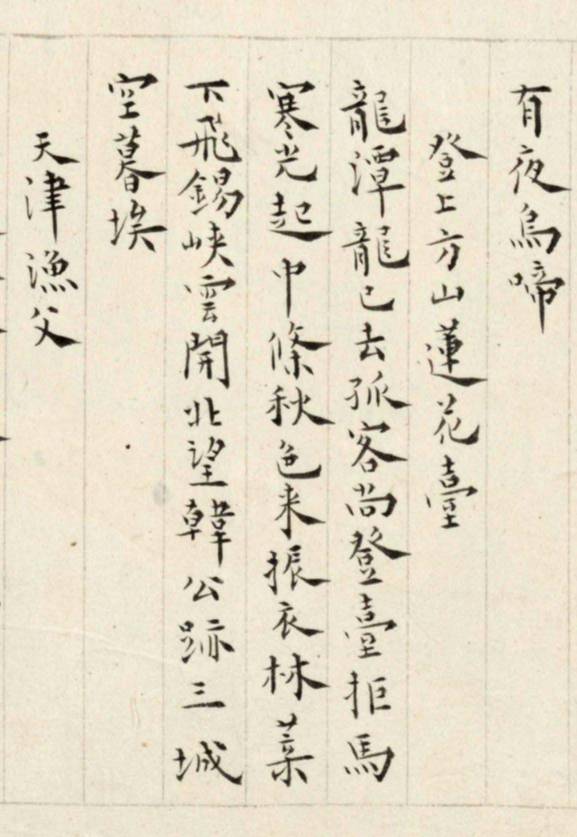 有夜烏啼
登上方山蓮花臺
龍潭龍已去孤客尚登臺拒馬
寒光起中條秋色来振衣林葉
下飛錫峽雲開北望韓公跡三城
空暮埃
天津漁父